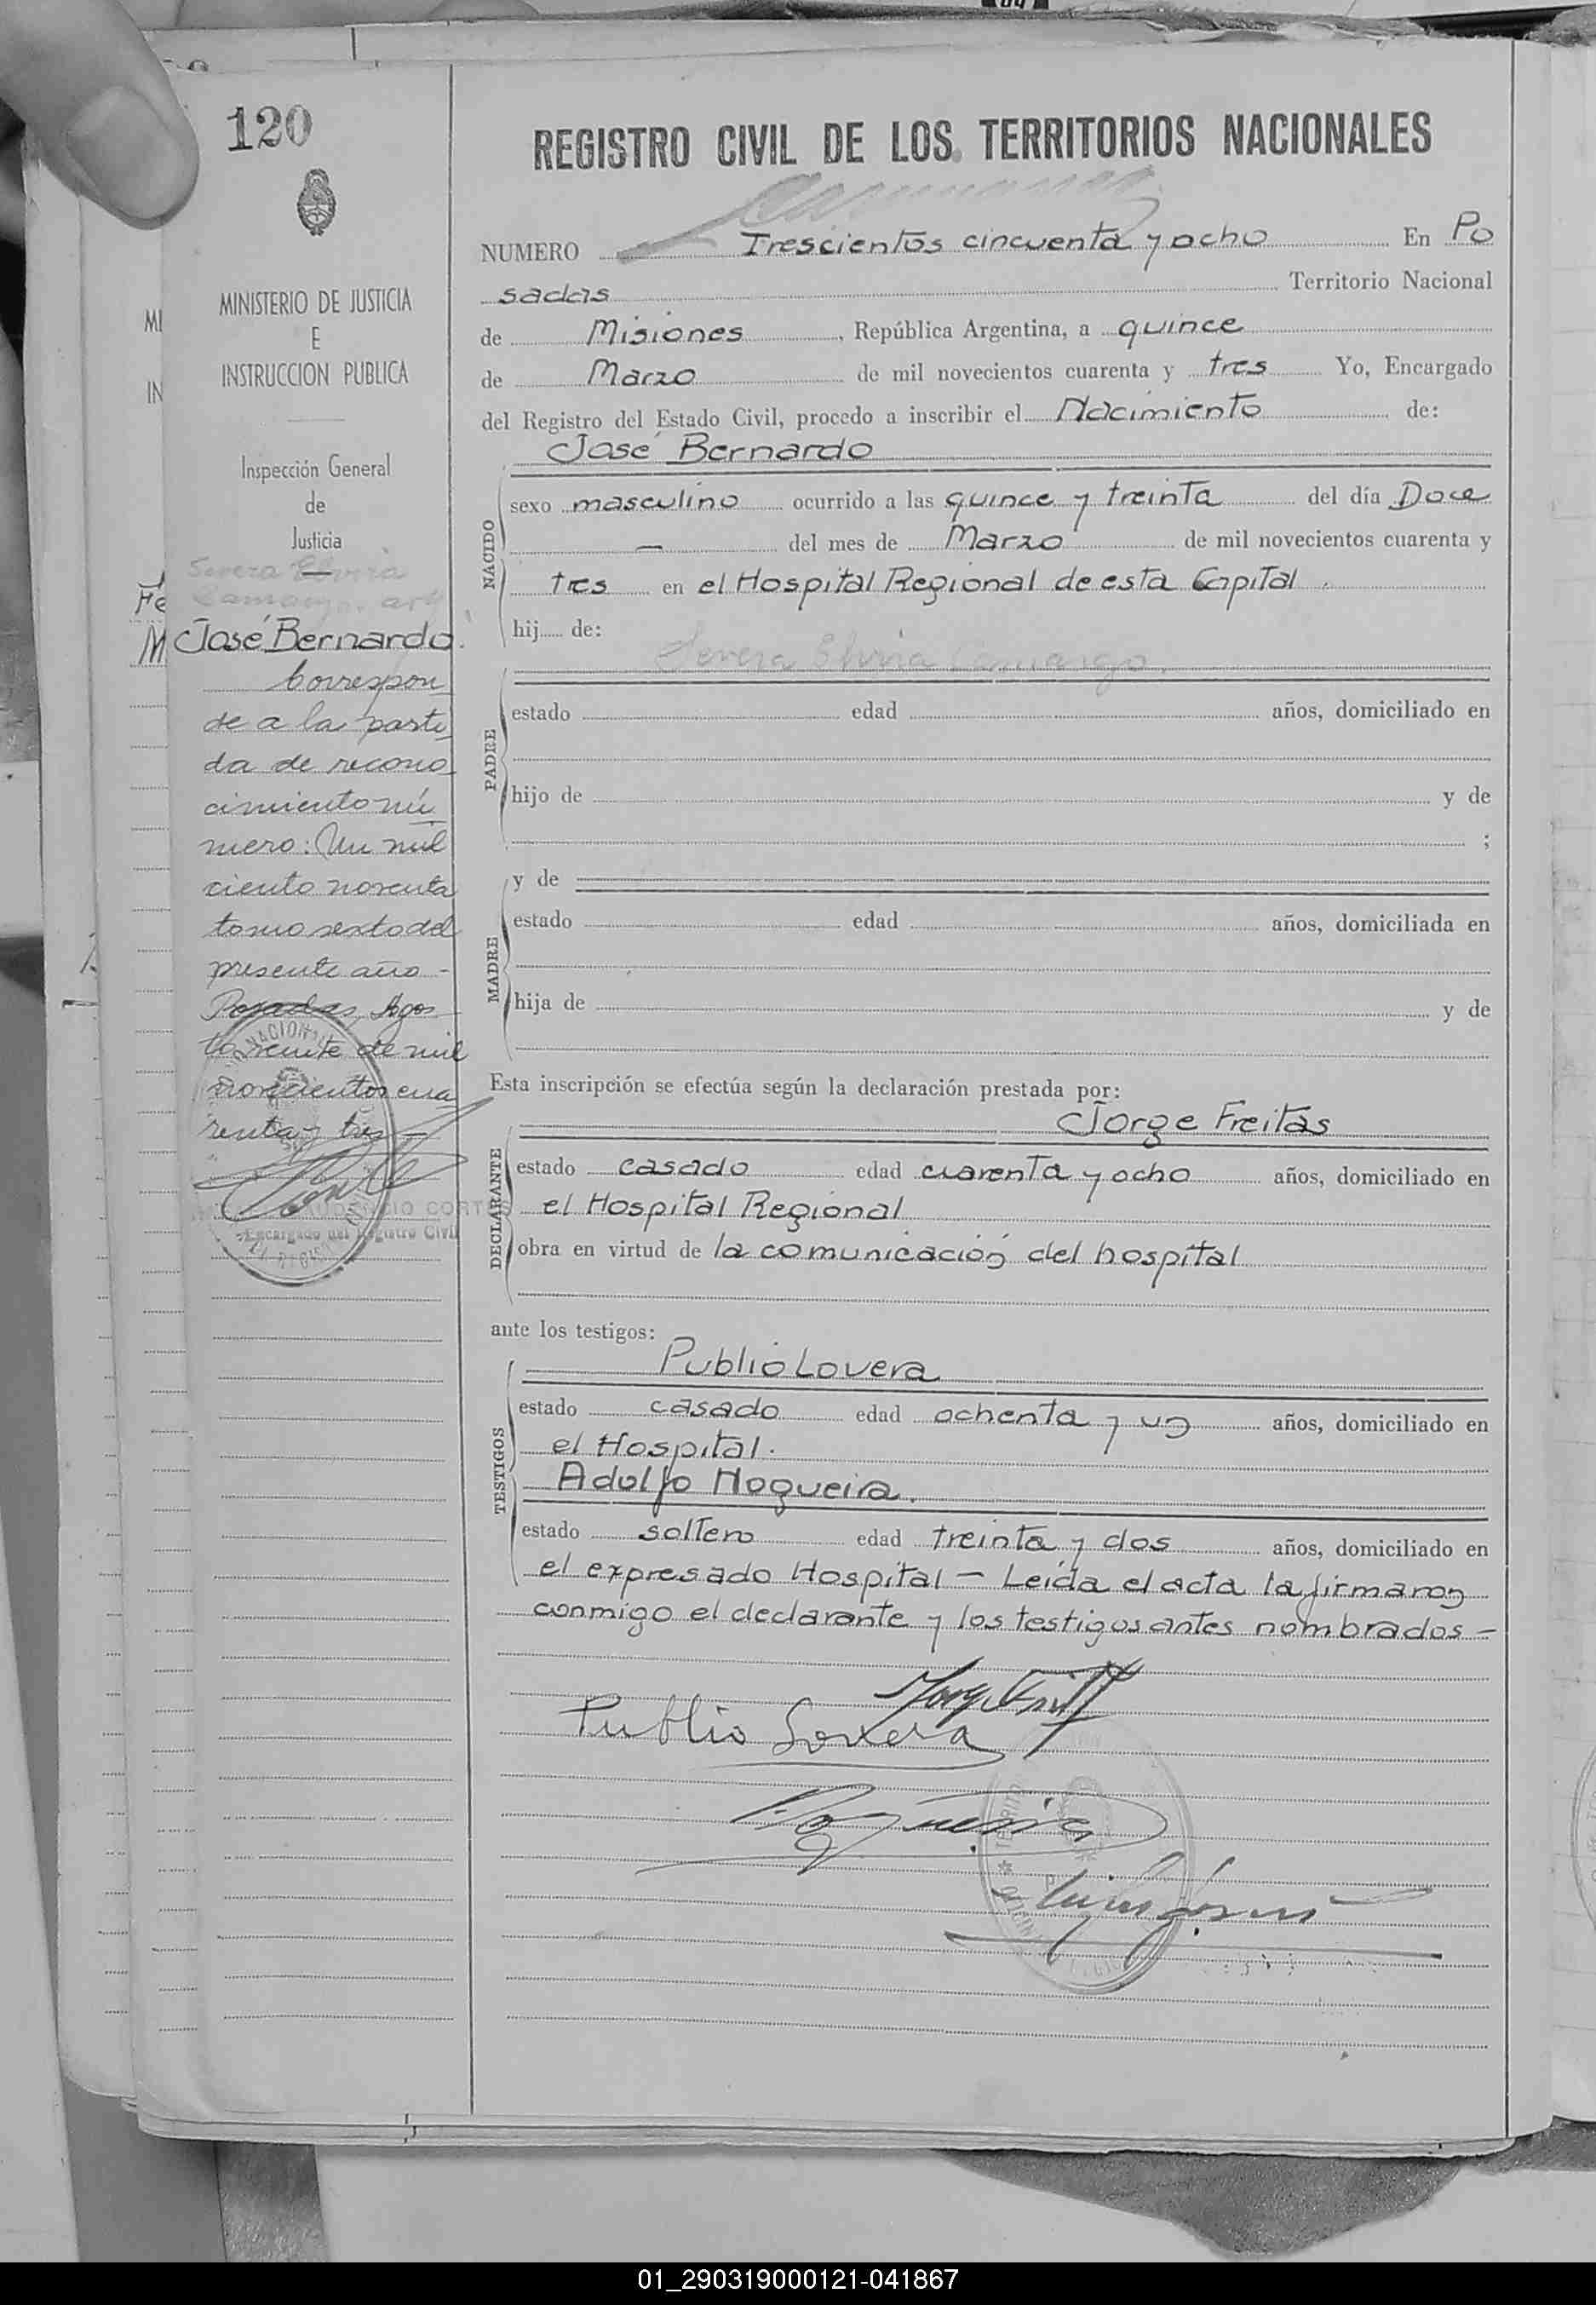 120
REGISTRO CIVIL DE LOS TERRITORIOS NACIONALES
NUMERO Trescientos cincuenta y ocho En Po
sadas Territorio Nacional
de Misiones, República Argentina, a quince
de Marzo de mil novecientos cuarenta y tres Yo, Encargado
del Registro del Estado Civil, procedo a inscribir el Nacimiento de:
José Bernardo
NACIDO
sexo masculino ocurrido a las quince y treinta del día Doce
— del mes de Marzo de mil novecientos cuarenta y
tres en el Hospital Regional de esta Capital.
hij de:
Severa Elvira Camargo.
PADRE
estado edad años, domiciliado en
hijo de y de
;
MADRE
y de
estado edad años, domiciliada en
hija de y de
Esta inscripción se efectúa según la declaración prestada por:
Jorge Freitas
DECLARANTE
estado casado edad cuarenta y ocho años, domiciliado en
el Hospital Regional
obra en virtud de la comunicación del hospital
ante los testigos:
TESTIGOS
Publio Lovera
estado casado edad ochenta y un años, domiciliado en
el Hospital.
Adolfo Nogueira.
estado soltero edad treinta y dos años, domiciliado en
el expresado Hospital — Leída el acta la firmaron
conmigo el declarante y los testigos antes nombrados —
Publio Lovera
Nogueira
MINISTERIO DE JUSTICIA
E
INSTRUCCION PUBLICA
Inspección General
de
Justicia
Severa Elvira
Camargo
José Bernardo.
Correspon
de a la parti
da de recono
cimiento nú
mero: Un mil
ciento noventa
tomo sexto del
presente año -
Posadas, Agos
to veinte de mil
novecientos cua
renta y tres —
Encargado del Registro Civil
01_290319000121-041867